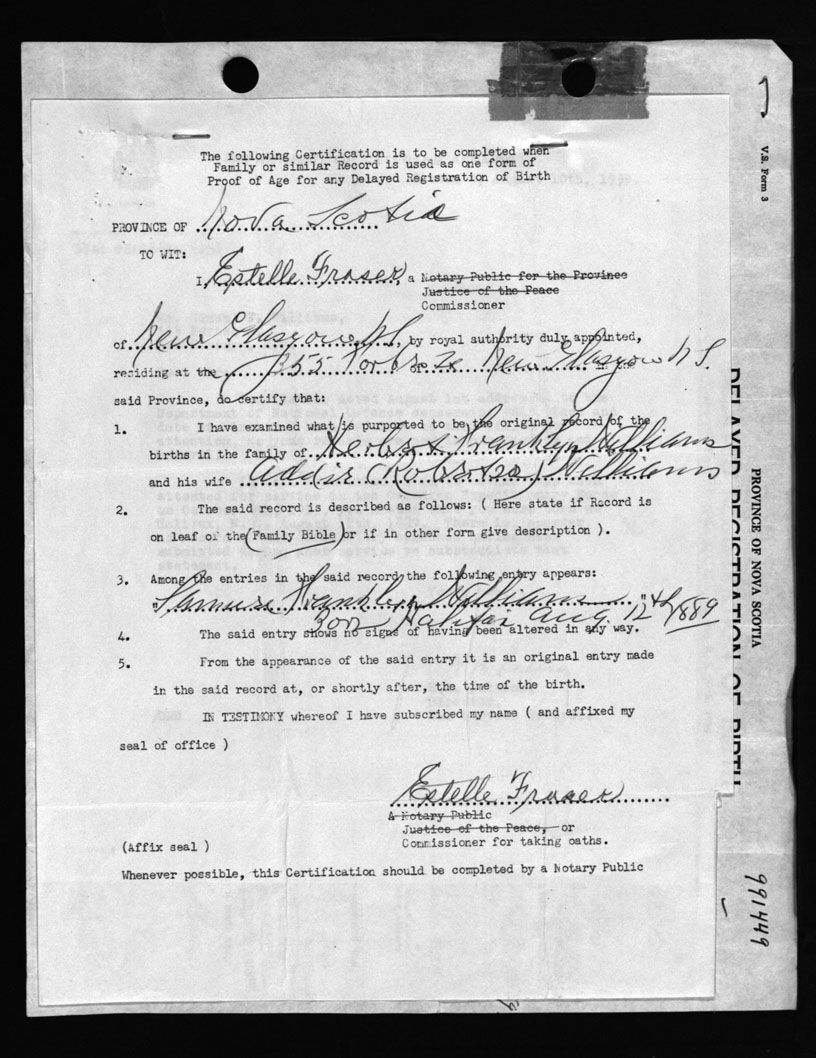 The following Certification is to be completed when
Family or similar Record is used as one form of
Proof of Age for any Delayed Registration of Birth
PROVINCE OF Nova Scotia
TO WIT:
I, Estelle Fraser, a Notary Public for the Province
Justice of the Peace
Commissioner
of New Glasgow N S, by royal authority duly appointed,
residing at the 355 Forbes St New Glasgow N S. in the
said Province, do certify that:
1. I have examined what is purported to be the original record of the
births in the family of Franklyn Williams
and his wife Addie (Roberts) Williams
2. The said record is described as follows: ( Here state if Record is
on leaf of the (Family Bible) or if in other form give description ).
3. Among the entries in the said record the following entry appears:
" Franklyn Williams "
Born Halifax Aug. 12th/1889
4. The said entry shows no signs of having been altered in any way.
5. From the appearance of the said entry it is an original entry made
in the said record at, or shortly after, the time of the birth.
IN TESTIMONY whereof I have subscribed my name ( and affixed my
seal of office )
Estelle Fraser
A Notary Public
Justice of the Peace, or
Commissioner for taking oaths.
(Affix seal )
Whenever possible, this Certification should be completed by a Notary Public
V.S. Form 3
PROVINCE OF NOVA SCOTIA
DELAYED REGISTRATION OF BIRTH
991449